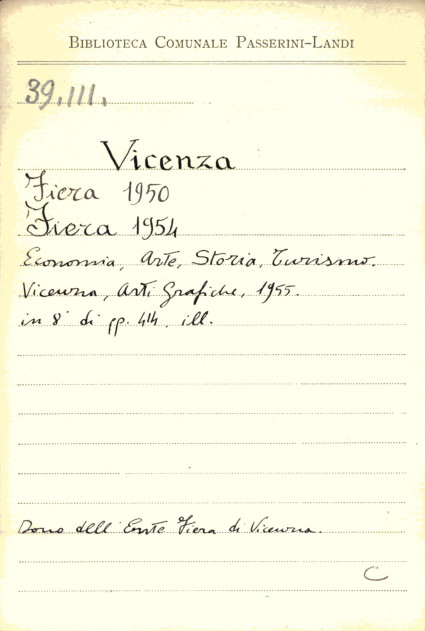 BIBLIOTECA COMUNALE PASSERINI-LANDI
39.III.
Vicenza
Fiera 1950
Fiera 1954
Economia, Arte, Storia, Turismo.
Vicenza, Arti Grafiche, 1955.
in 8° di pp. 414, ill.
Dono dell'Ente Fiera di Vicenza.
C